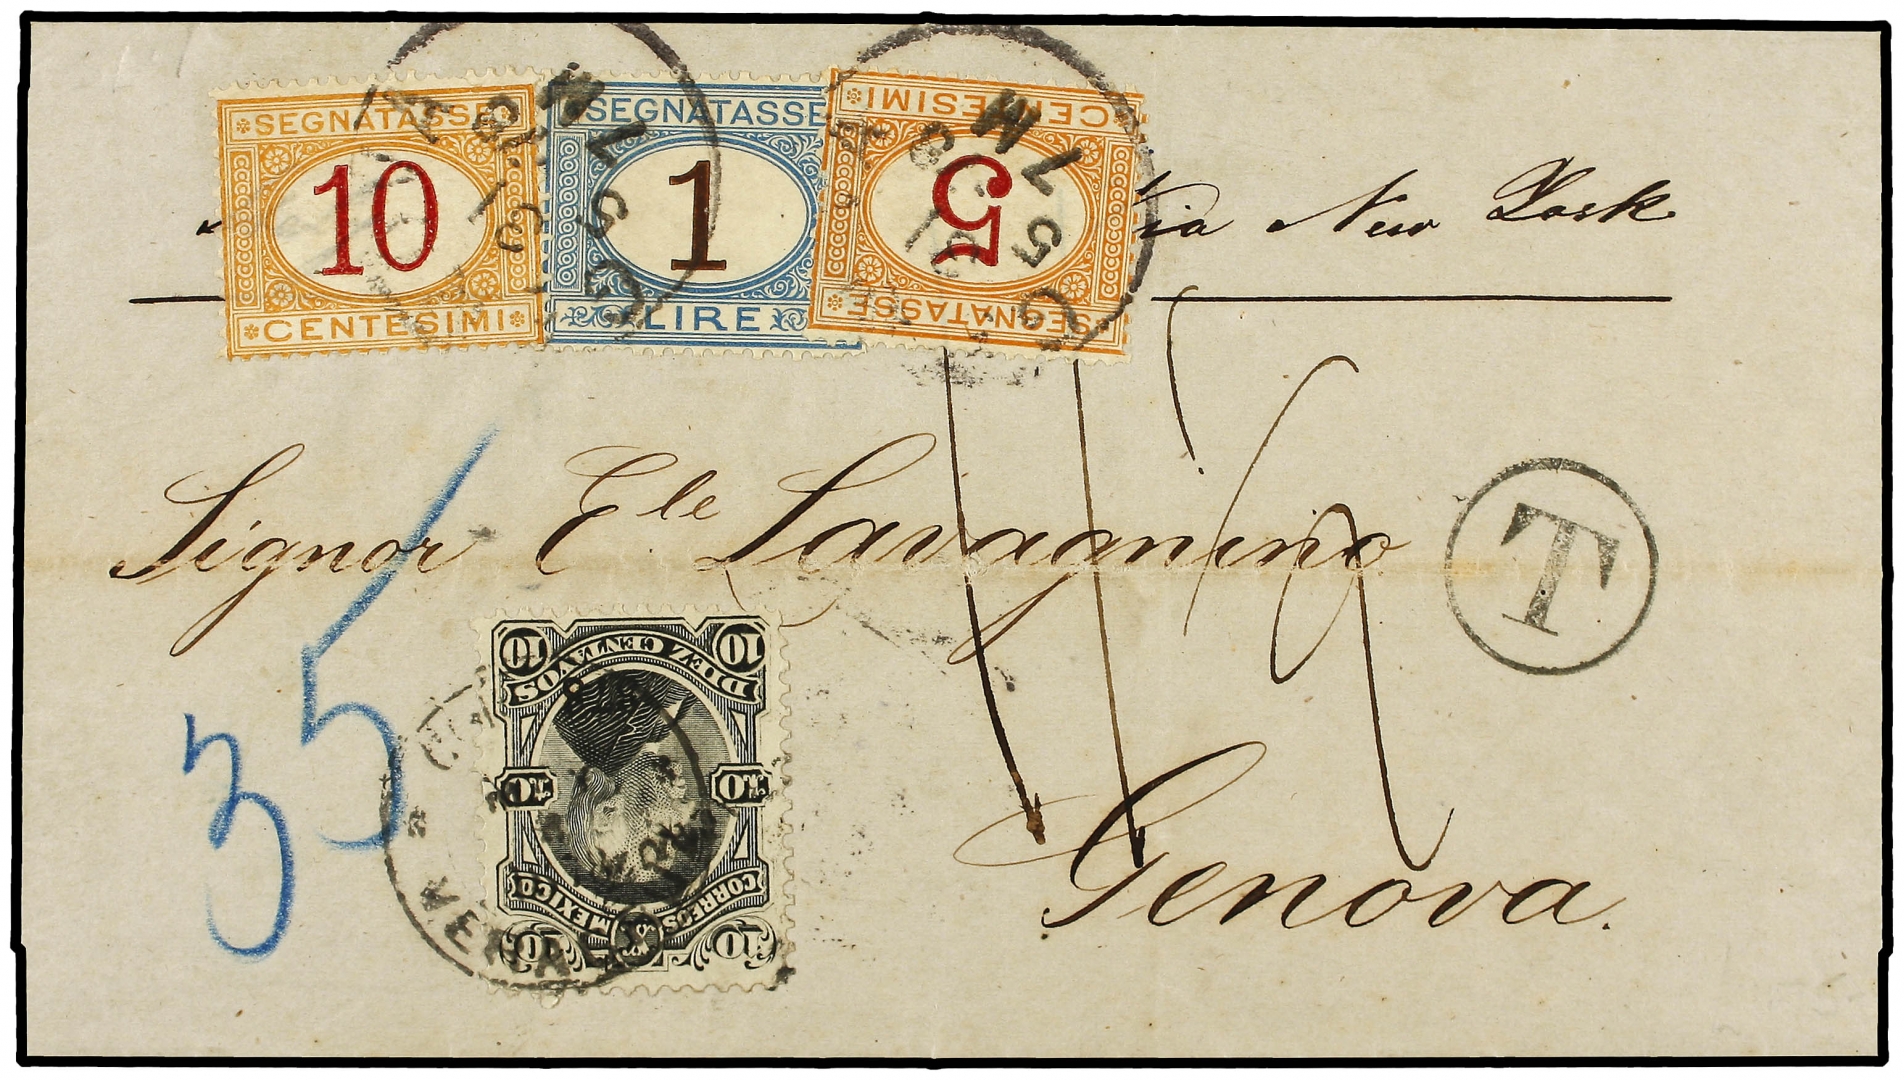 SEGNATASSE
10
CENTESIMI
SEGNATASSE
1
LIRE
CENTESIMI
5
SEGNATASSE
Via New York
Signor E.le Lavagnino
T
35
10 10
DIEZ CENTAVOS
10 10
CORREOS MEXICO
10 10
Genova.